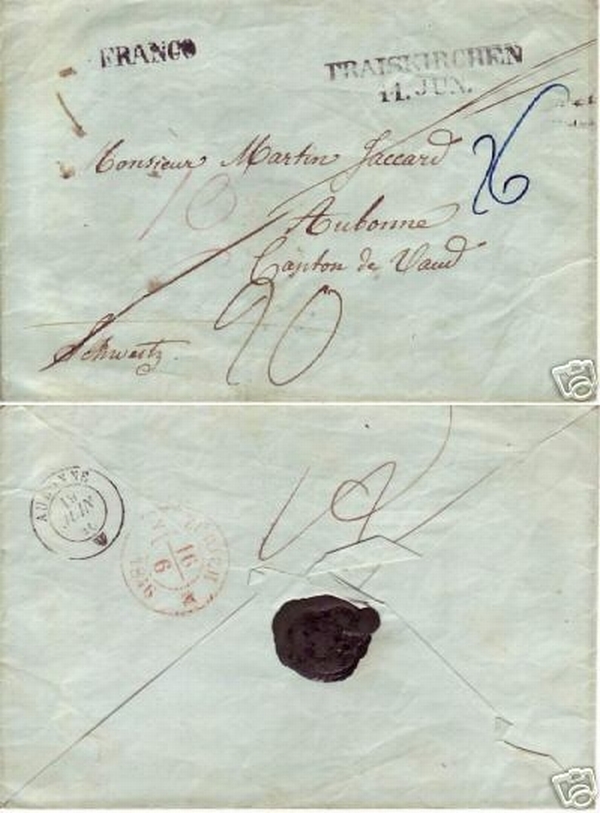 FRANCO
TRAISKIRCHEN
11. JUN.
Monsieur Martin Jaccard
Aubonne
Canton de Vaud
Schweitz
26
90
AUBONNE
18
JUIN
ZÜRICH
16
6
1846